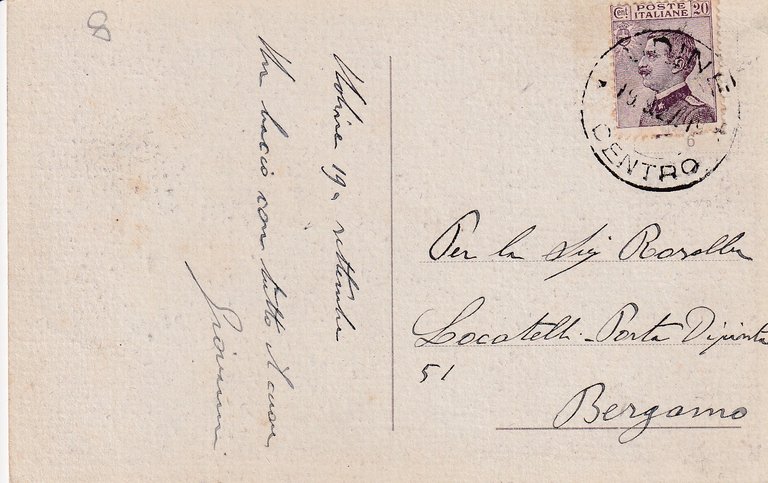 Udine 19 settembre
Un bacio con tutto il cuore
Giovanni
Cent. POSTE ITALIANE 20
UDINE
19.9.27
CENTRO
Per la Sig Rosella
Locatelli - Porta Dipinta
51
Bergamo